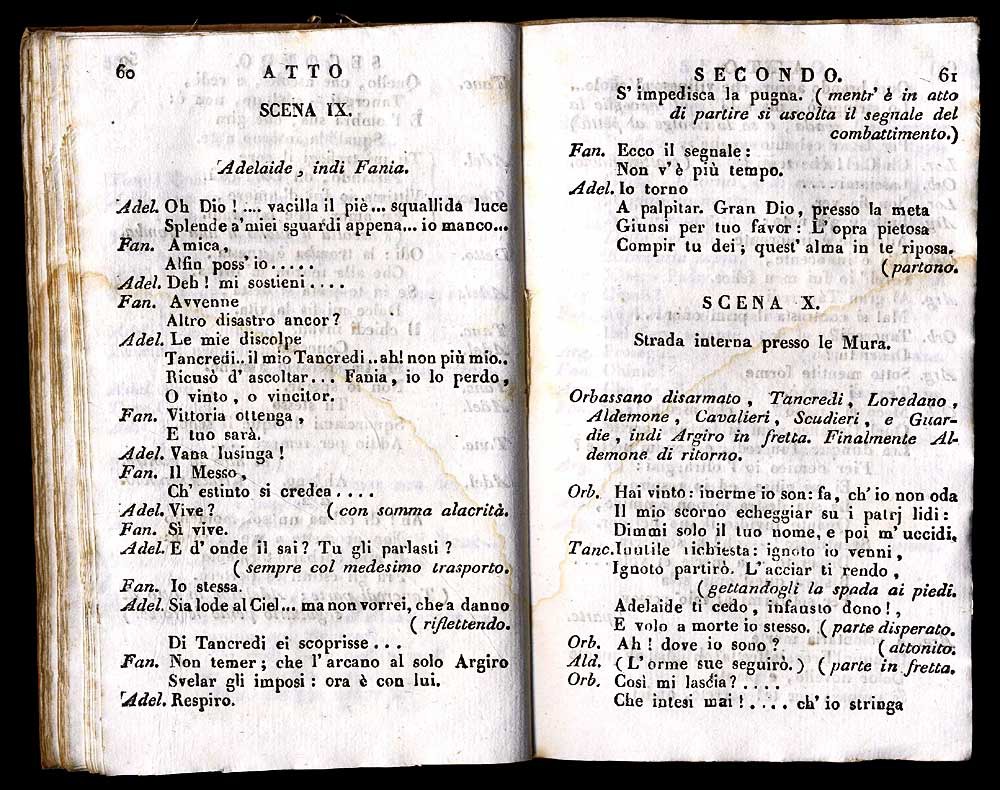 60
ATTO
SCENA IX.
Adelaide, indi Fania.
Adel. Oh Dio! .... vacilla il piè... squallida luce
Splende a' miei sguardi appena... io manco...
Fan. Amica,
Alfin poss' io.....
Adel. Deh! mi sostieni....
Fan. Avvenne
Altro disastro ancor?
Adel. Le mie discolpe
Tancredi.. il mio Tancredi.. ah! non più mio..
Ricusò d' ascoltar... Fania, io lo perdo,
O vinto, o vincitor.
Fan. Vittoria ottenga,
E tuo sarà.
Adel. Vana lusinga!
Fan. Il Messo,
Ch' estinto si credea....
Adel. Vive? (con somma alacrità.
Fan. Sì vive.
Adel. E d' onde il sai? Tu gli parlasti?
(sempre col medesimo trasporto.
Fan. Io stessa.
Adel. Sia lode al Ciel... ma non vorrei, che a danno
(riflettendo.
Di Tancredi ei scoprisse...
Fan. Non temer; che l' arcano al solo Argiro
Svelar gli imposi: ora è con lui.
Adel. Respiro.
SECONDO. 61
S' impedisca la pugna. (mentr' è in atto
di partire si ascolta il segnale del
combattimento.)
Fan. Ecco il segnale:
Non v' è più tempo.
Adel. Io torno
A palpitar. Gran Dio, presso la meta
Giunsi per tuo favor: L' opra pietosa
Compir tu dei; quest' alma in te riposa.
(partono.
SCENA X.
Strada interna presso le Mura.
Orbassano disarmato, Tancredi, Loredano,
Aldemone, Cavalieri, Scudieri, e Guar-
die, indi Argiro in fretta. Finalmente Al-
demone di ritorno.
Orb. Hai vinto: inerme io son: fa, ch' io non oda
Il mio scorno echeggiar su i patrj lidi:
Dimmi solo il tuo nome, e poi m' uccidi.
Tanc. Inutile richiesta: ignoto io venni,
Ignoto partirò. L' acciar ti rendo,
(gettandogli la spada ai piedi.
Adelaide ti cedo, infausto dono!,
E volo a morte io stesso. (parte disperato.
Orb. Ah! dove io sono? (attonito.
Ald. (L' orme sue seguirò.) (parte in fretta.
Orb. Così mi lascia?....
Che intesi mai!.... ch' io stringa